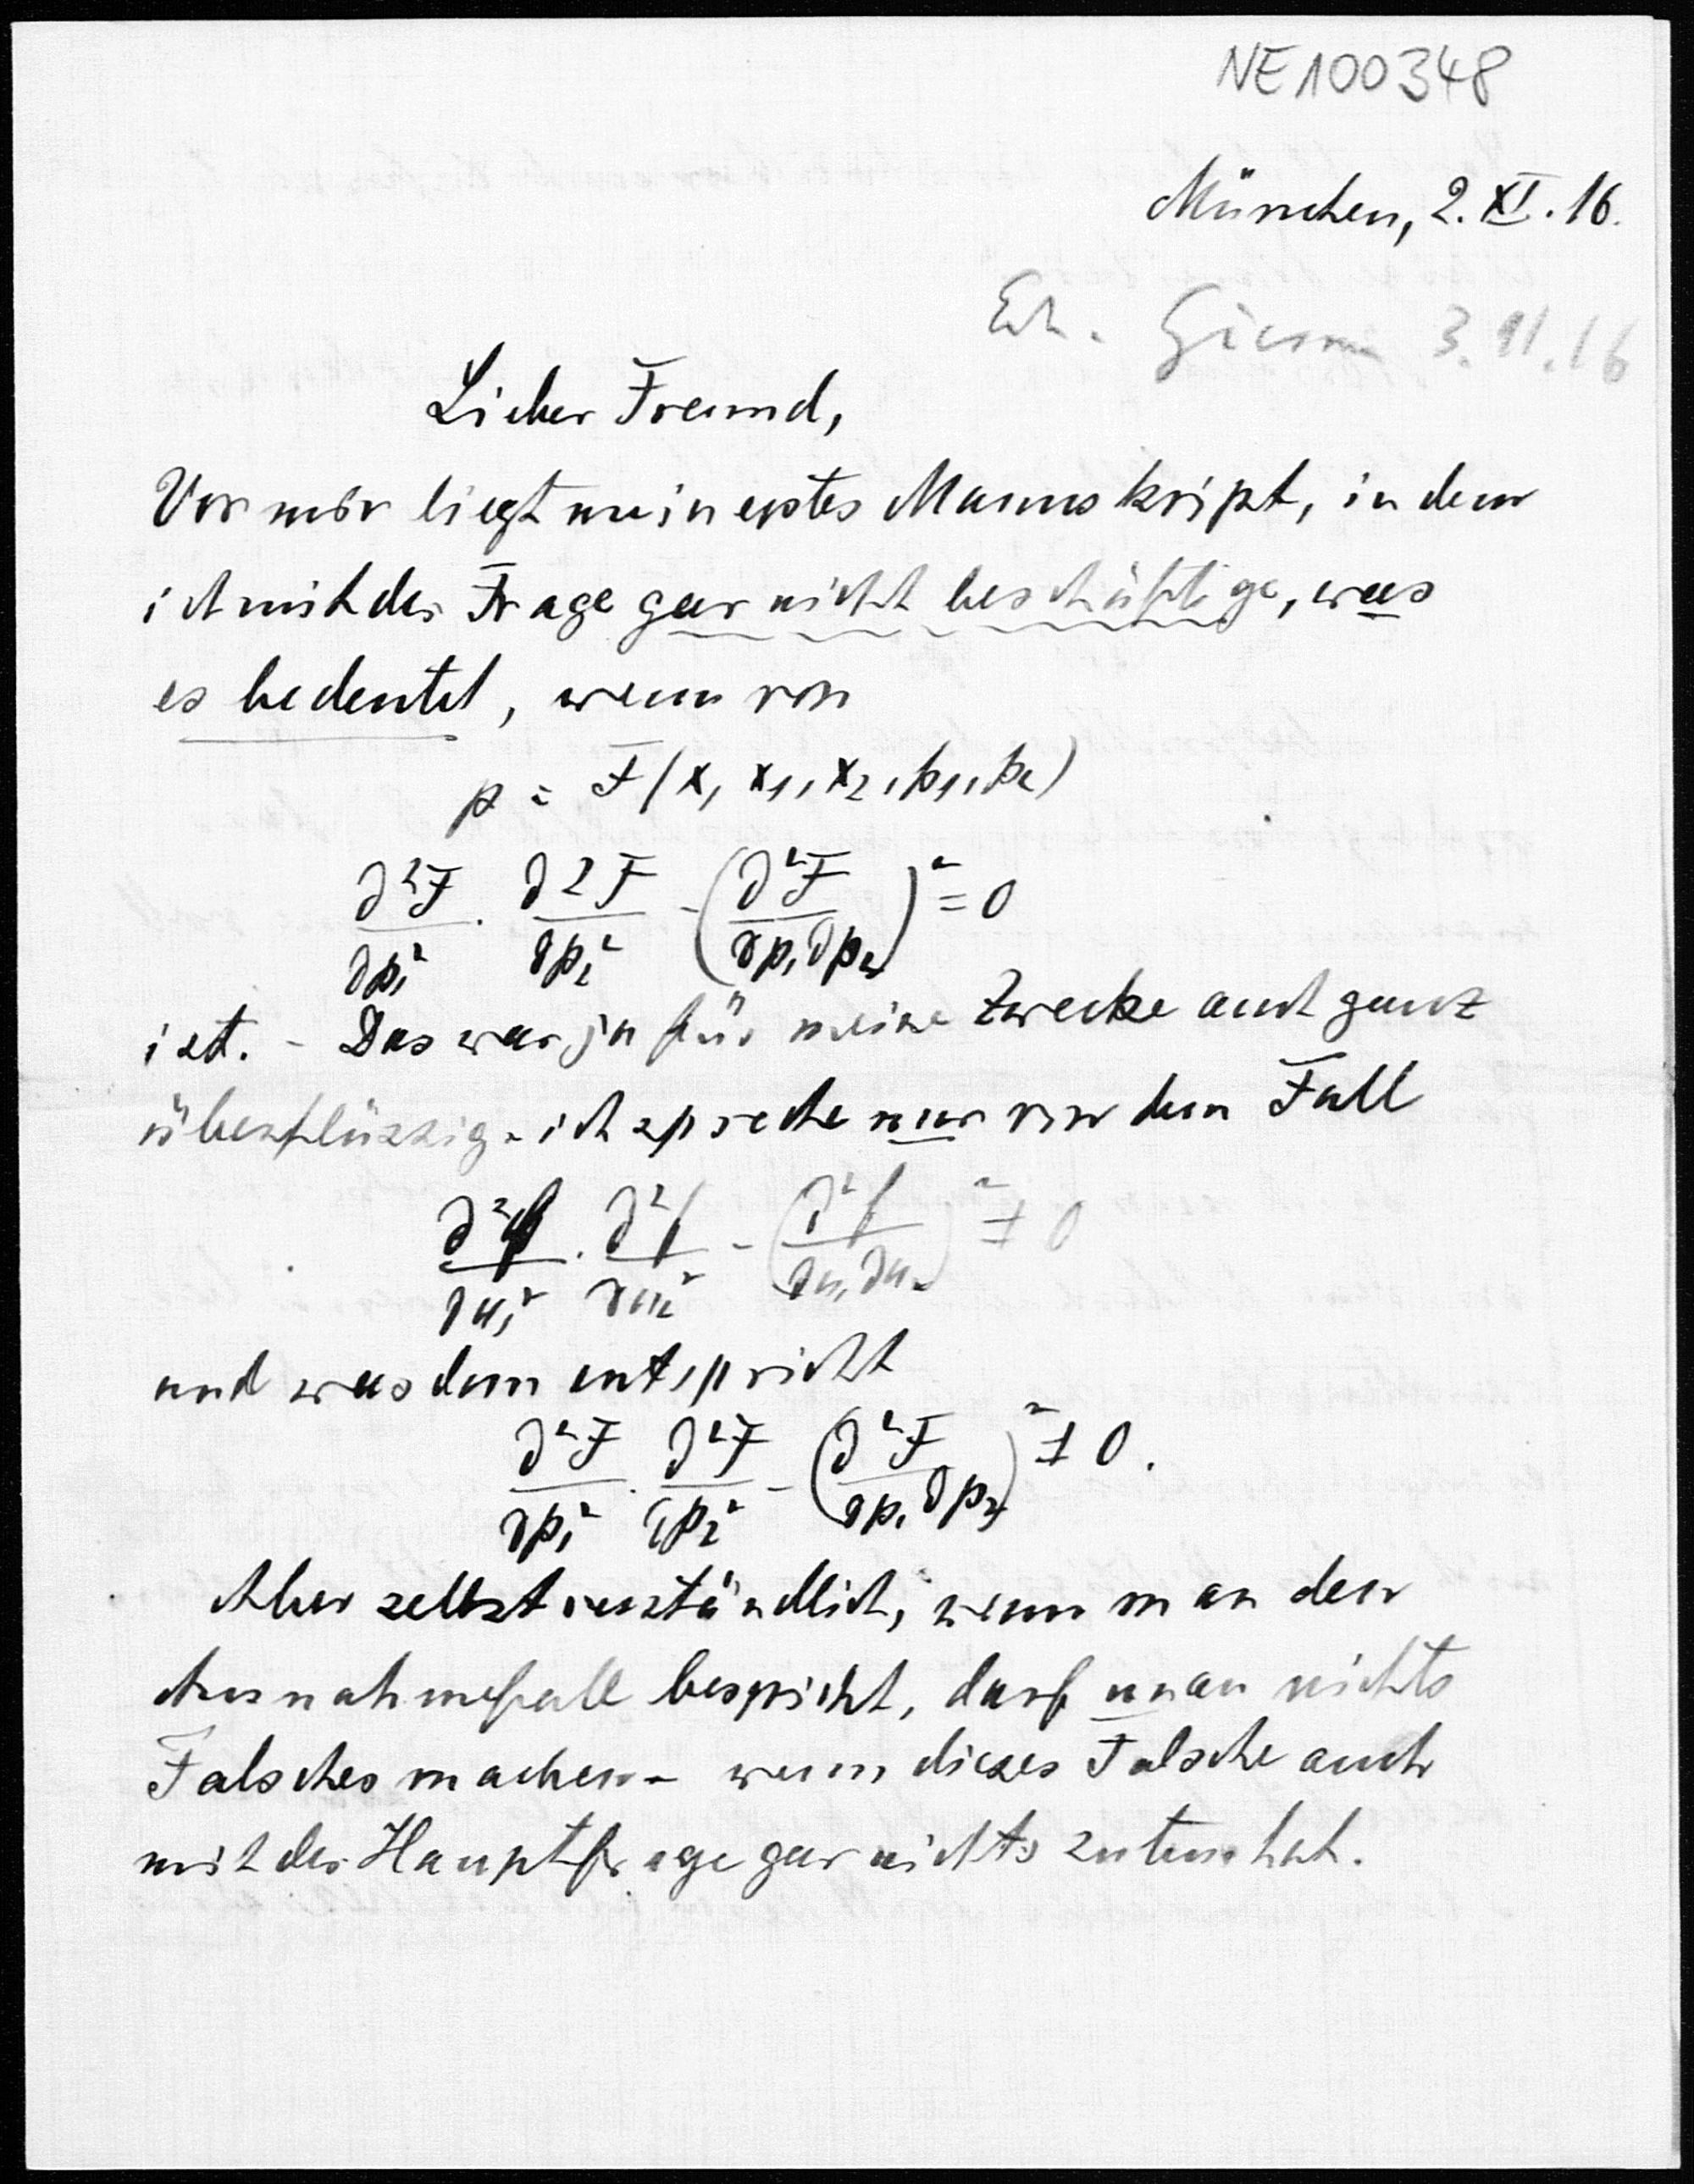 NE100348
München, 2. XI. 16.
Erh. Giessen 3.11.16
Lieber Freund,
Vor mir liegt mein erstes Manuskript, in dem
ich mit der Frage gar nicht beschäftige, was
es bedeutet, wenn von
p = F(x, x₁, x₂, p₁, p₂)
∂²F/∂p₁² · ∂²F/∂p₂² - (∂²F/∂p₁∂p₂)² = 0
ist. - Das war ja für meine Zwecke auch ganz
überflüssig - ich spreche nur von dem Fall
∂²f/∂u₁² · ∂²f/∂u₂² - (∂²f/∂u₁∂u₂)² ≠ 0
und was dem entspricht
∂²F/∂p₁² · ∂²F/∂p₂² - (∂²F/∂p₁∂p₂)² ≠ 0.
Aber selbstverständlich, wenn man den
Ausnahmefall bespricht, darf man nichts
Falsches machen - wenn dieses Falsche auch
mit der Hauptfrage gar nichts zutun hat.